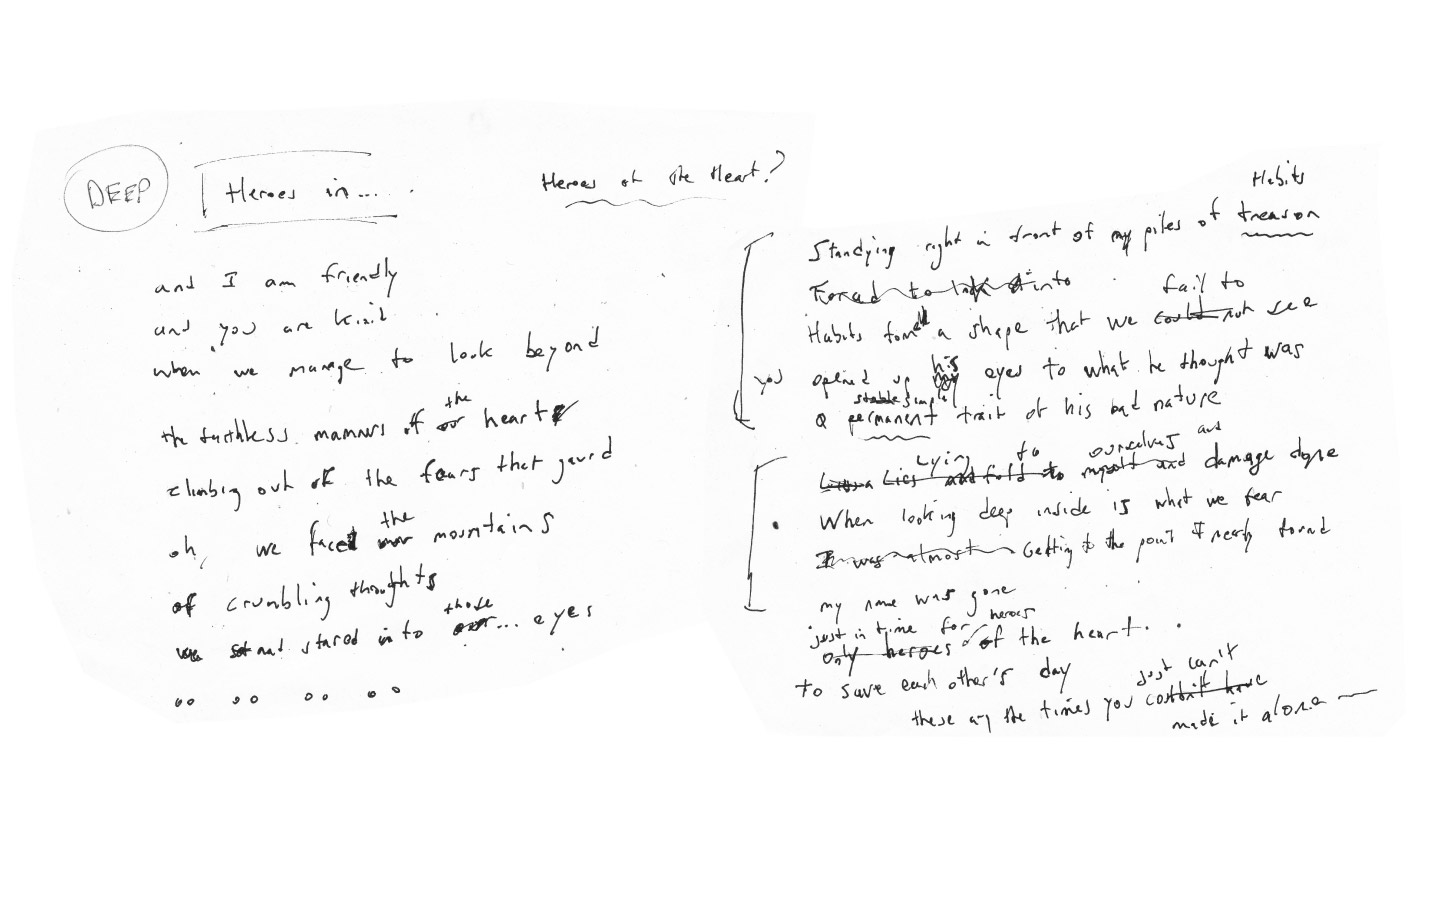 DEEP
Heroes in....
Heroes of the Heart?
and I am friendly
and you are kind
when we manage to look beyond
the
the faithless manners of our heart
climbing out of the fears that guard
the
oh, we faced our mountains
of crumbling thoughts
those
and stared into our... eyes
Habits
Standying right in front of my piles of treason
Forced to look into
fail to
Habits formed a shape that we could not see
his
you opened up my eyes to what he thought was
stable simple
a permanent trait of his bad nature
Lying to ourselves and
Lies and told to myself and damage done
When looking deep inside is what we fear
It was almost Getting to the point I nearly found
my name was gone
just in time for heroes
only heroes of the heart..
to save each other's day
just can't
these are the times you couldn't have
made it alone